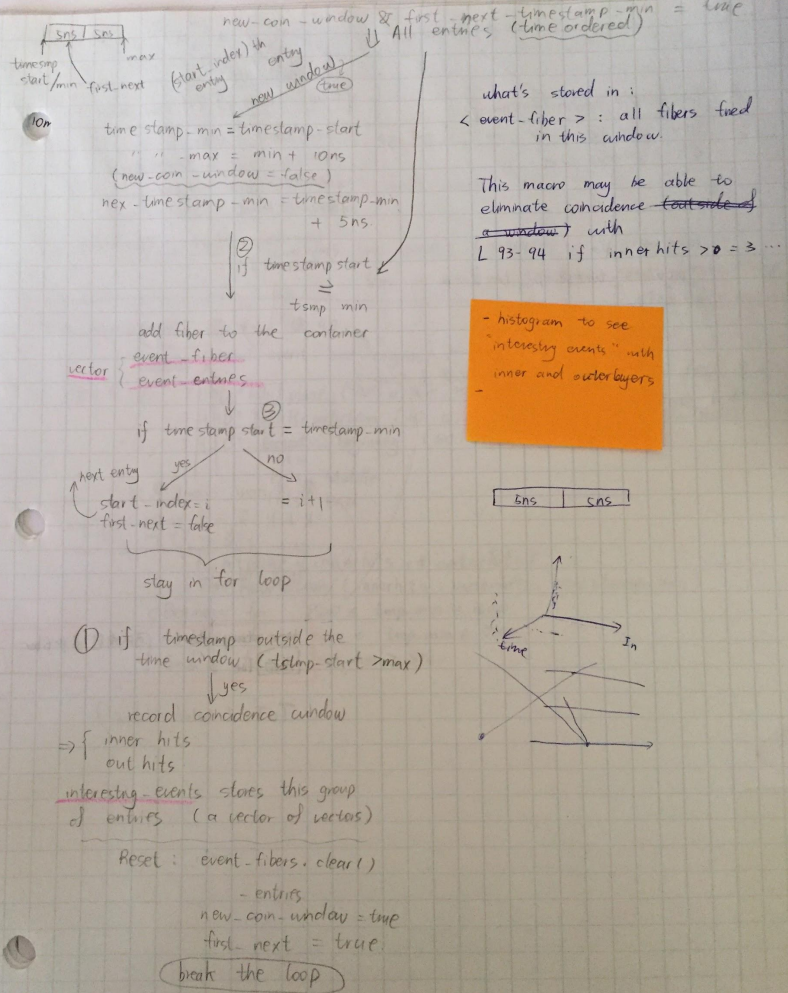 new-coin-window & first-next-timestamp-min = true
⇓ All entries (time ordered)
5ns | 5ns
timestmp
start/min
first-next
max
(start_index)th
entry
entry
new window
true
10n
time stamp-min = timestamp-start
" " -max = min + 10ns
(new-coin-window = false)
nex-timestamp-min = timestamp-min
+ 5ns
②
if timestamp start
≥
tsmp min
add fiber to the container
vector { event_fiber
event_entries
③
if timestamp start = timestamp-min
yes
no
next entry
start-index = i
first-next = false
= i+1
stay in for loop
① if timestamp outside the
time window (tstmp-start > max)
yes
record coincidence window
⇒ { inner hits
out hits
interesting-events stores this group
of entries (a vector of vectors)
Reset : event-fibers.clear()
- entries
new-coin-window = true
first-next = true
break the loop
what's stored in :
< event-fiber > : all fibers fired
in this window.
This macro may be able to
eliminate coincidence (outside of
a window) with
L 93-94 if inner hits > = 3 ...
- histogram to see
"interestny events" with
inner and outer layers
-
5ns | 5ns
time
In